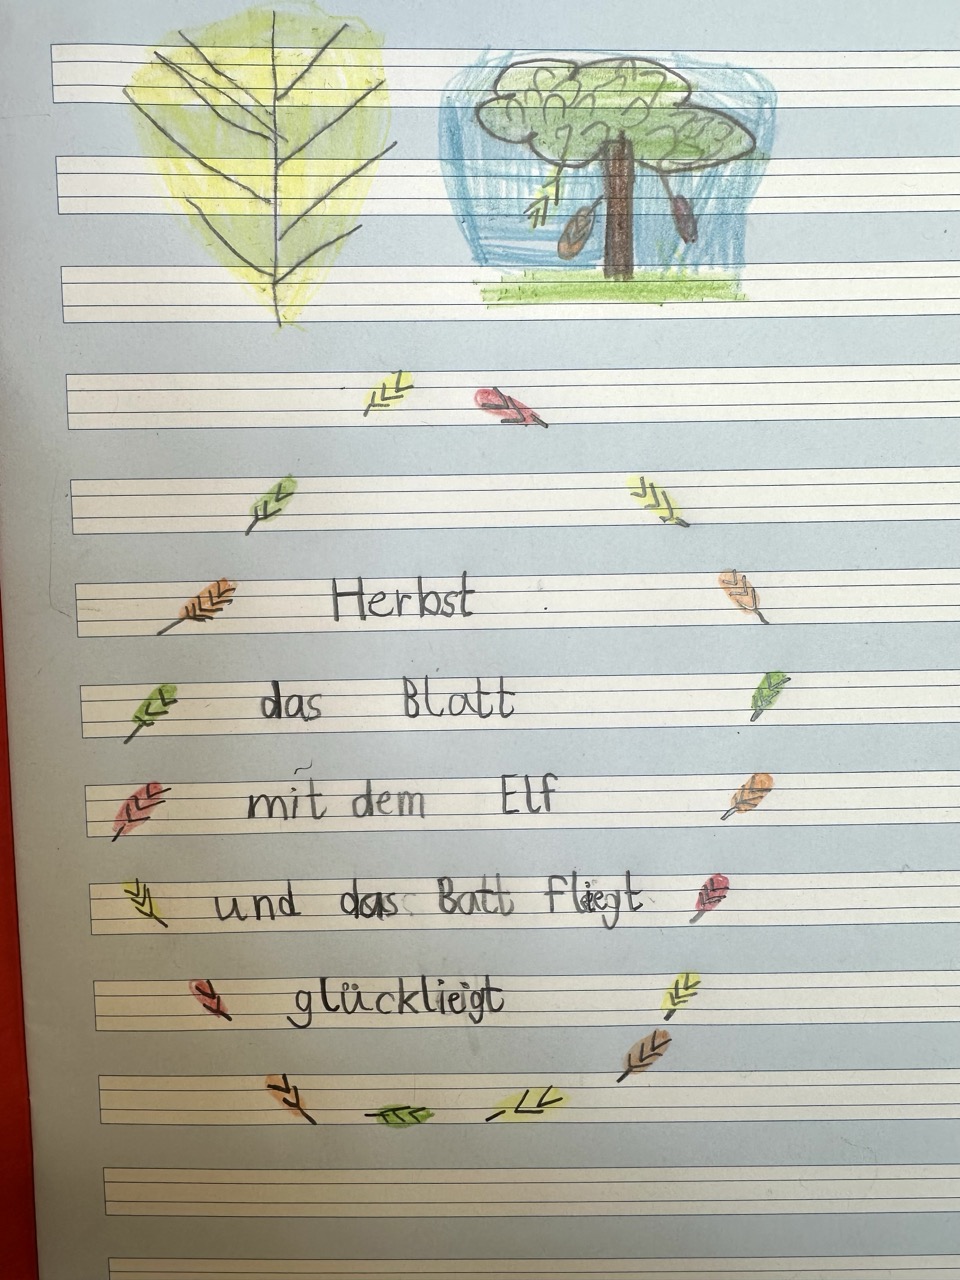 Herbst
das Blatt
mit dem Elf
und das Batt fliegt
glücklieigt